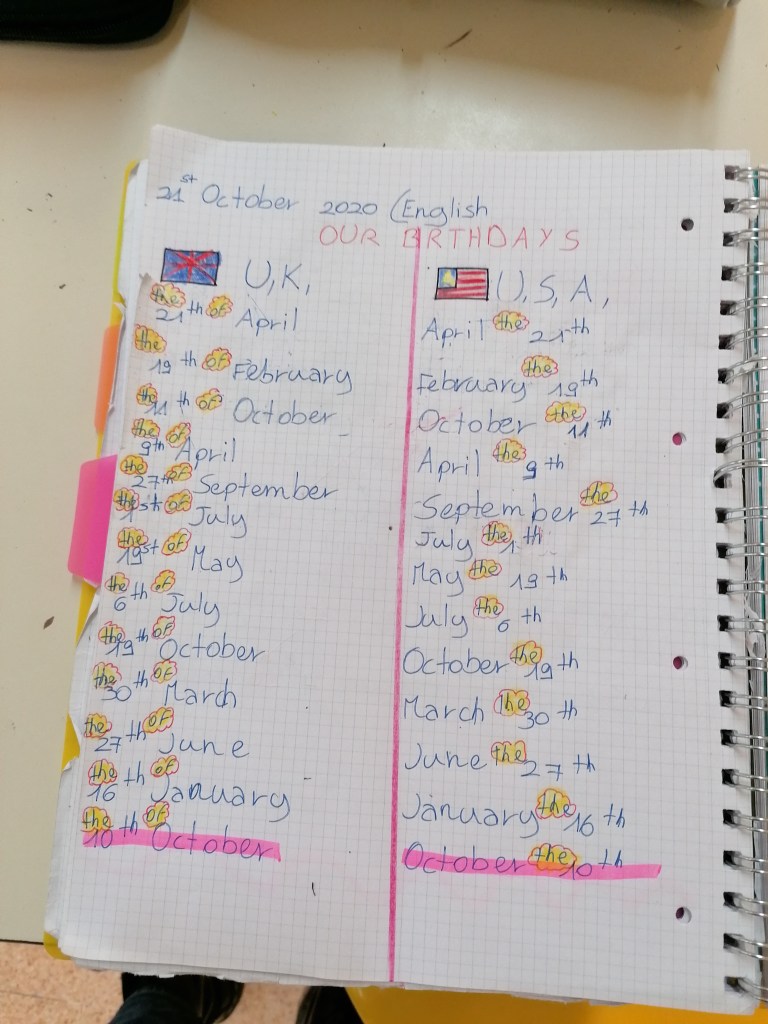 21st October 2020 (English
OUR BIRTHDAYS
U,K,
the 21th of April
the 19th of February
the 11th of October
the 9th of April
the 27th of September
the 1st of July
the 19st of May
the 6th of July
the 19th of October
the 30th of March
the 27th of June
the 16th of January
the 10th of October
U,S,A,
April the 21th
February the 19th
October the 11th
April the 9th
September the 27th
July the 1th
May the 19th
July the 6th
October the 19th
March the 30th
June the 27th
January the 16th
October the 10th